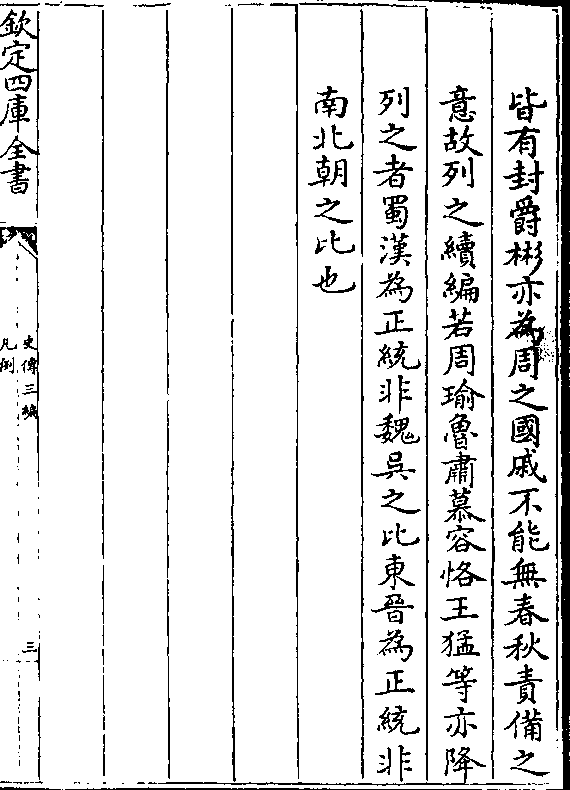 皆有封爵彬亦為周之國戚不能無春秋責備之
意故列之續編若周瑜魯肅慕容恪王猛等亦降
列之者蜀漢為正統非魏吳之比東晉為正統非
南北朝之比也
欽定四庫全書
史傳三編
凡例
三